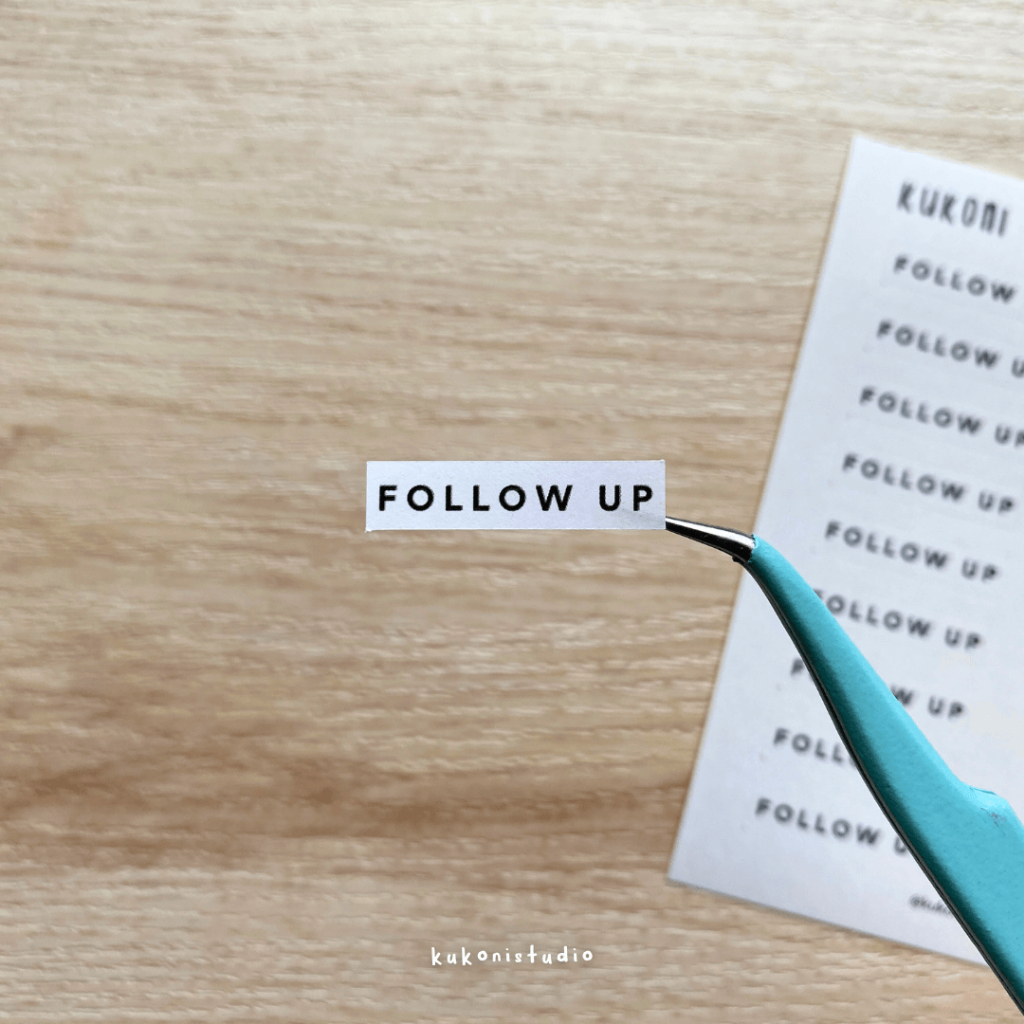 FOLLOW UP
KUKONI
FOLLOW
FOLLOW U
FOLLOW UP
FOLLOW UP
FOLLOW UP
FOLLOW UP
F W UP
FOLL
FOLLOW U
@kuko
kukonistudio